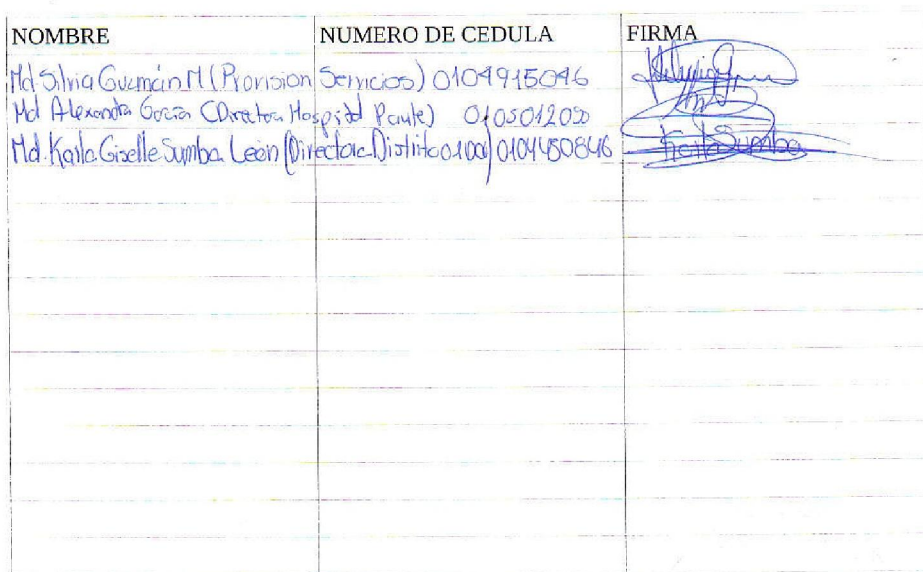 NOMBRE NUMERO DE CEDULA FIRMA
Md Silvia Guzmán M (Provision Servicios) 0104915046
Md Alexandra García (Directora Hospital Paute)
Md. Kaila Giselle Sumba León (Directora Distrito 0104450846 Kaila Sumba